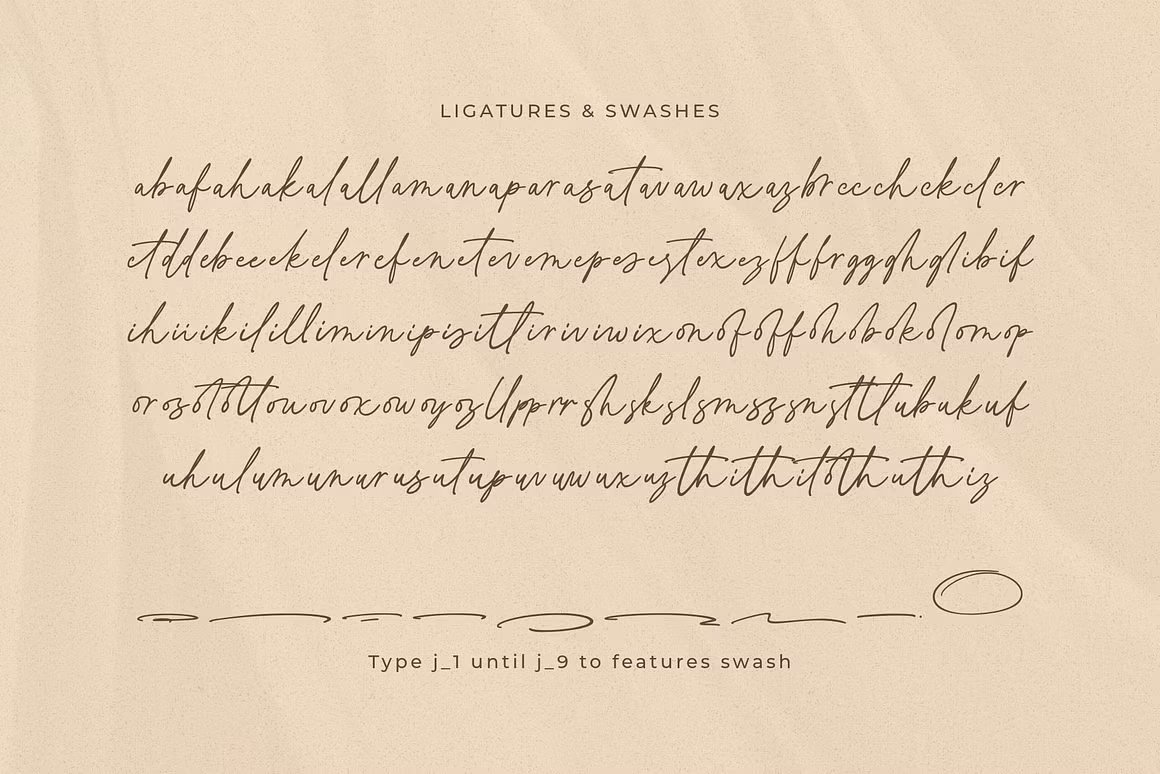 LIGATURES & SWASHES
abafahakalallamanaparasatavawaxazbreechckcler
ctddebeeekelerefenetevemepesestexezffffrggghglibif
ihiiikililliminipisitltiririviwixonofoffohobokolomop
orosotottouovoxowoyozllpprrshskslsmszsnsttlubukuf
uhulumunurusutupuvuwuxuzthithitothuthiz
Type j_1 until j_9 to features swash